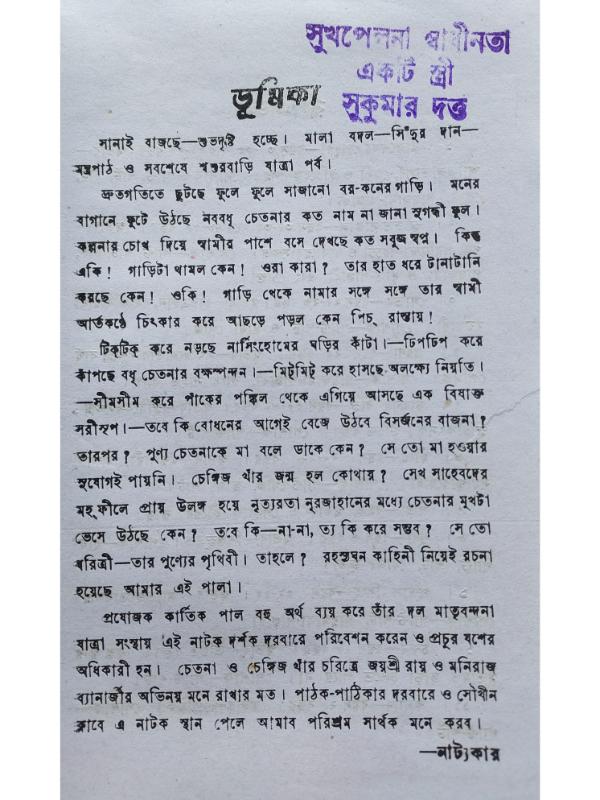 সুখপেলনা স্বাধীনতা
একটি স্ত্রী
সুকুমার দত্ত
ভূমিকা
সানাই বাজছে—শুভদৃষ্টি হচ্ছে। মালা বদল—সিঁদুর দান—
মন্ত্রপাঠ ও সবশেষে শ্বশুরবাড়ি যাত্রা পর্ব।
দ্রুতগতিতে ছুটছে ফুলে ফুলে সাজানো বর-কনের গাড়ি। মনের
বাগানে ফুটে উঠছে নববধূ চেতনার কত নাম না জানা সুগন্ধী ফুল।
কল্পনার চোখ দিয়ে স্বামীর পাশে বসে দেখছে কত সবুজ স্বপ্ন। কিন্তু
একি! গাড়িটা থামল কেন! ওরা কারা? তার হাত ধরে টানাটানি
করছে কেন! ওকি! গাড়ি থেকে নামার সঙ্গে সঙ্গে তার স্বামী
আর্তকণ্ঠে চিৎকার করে আছড়ে পড়ল কেন পিচ্ রাস্তায়!
টিক্‌টিক্ করে নড়ছে নার্সিংহোমের ঘড়ির কাঁটা।—ঢিপঢিপ করে
কাঁপছে বধূ চেতনার বক্ষস্পন্দন।—মিট্‌মিট্ করে হাসছে অলক্ষ্যে নিয়তি।
—সীমসীম করে পাঁকের পঙ্কিল থেকে এগিয়ে আসছে এক বিষাক্ত
সরীসৃপ।—তবে কি বোধনের আগেই বেজে উঠবে বিসর্জনের বাজনা?
তারপর? পুণ্য চেতনাকে মা বলে ডাকে কেন? সে তো মা হওয়ার
সুযোগই পায়নি। চেঙ্গিজ খাঁর জন্ম হল কোথায়? সেখ সাহেবদের
মহ্‌ফীলে প্রায় উলঙ্গ হয়ে নৃত্যরতা নূরজাহানের মধ্যে চেতনার মুখটা
ভেসে উঠছে কেন? তবে কি—না-না, তা কি করে সম্ভব? সে তো
ধরিত্রী—তার পুণ্যের পৃথিবী। তাহলে? রহস্যঘন কাহিনী নিয়েই রচনা
হয়েছে আমার এই পালা।
প্রযোজক কার্তিক পাল বহু অর্থ ব্যয় করে তাঁর দল মাতৃবন্দনা
যাত্রা সংস্থায় এই নাটক দর্শক দরবারে পরিবেশন করেন ও প্রচুর যশের
অধিকারী হন। চেতনা ও চেঙ্গিজ খাঁর চরিত্রে জয়শ্রী রায় ও মনিরাজ
ব্যানার্জীর অভিনয় মনে রাখার মত। পাঠক-পাঠিকার দরবারে ও সৌখীন
ক্লাবে এ নাটক স্থান পেলে আমার পরিশ্রম সার্থক মনে করব।
—নাট্যকার